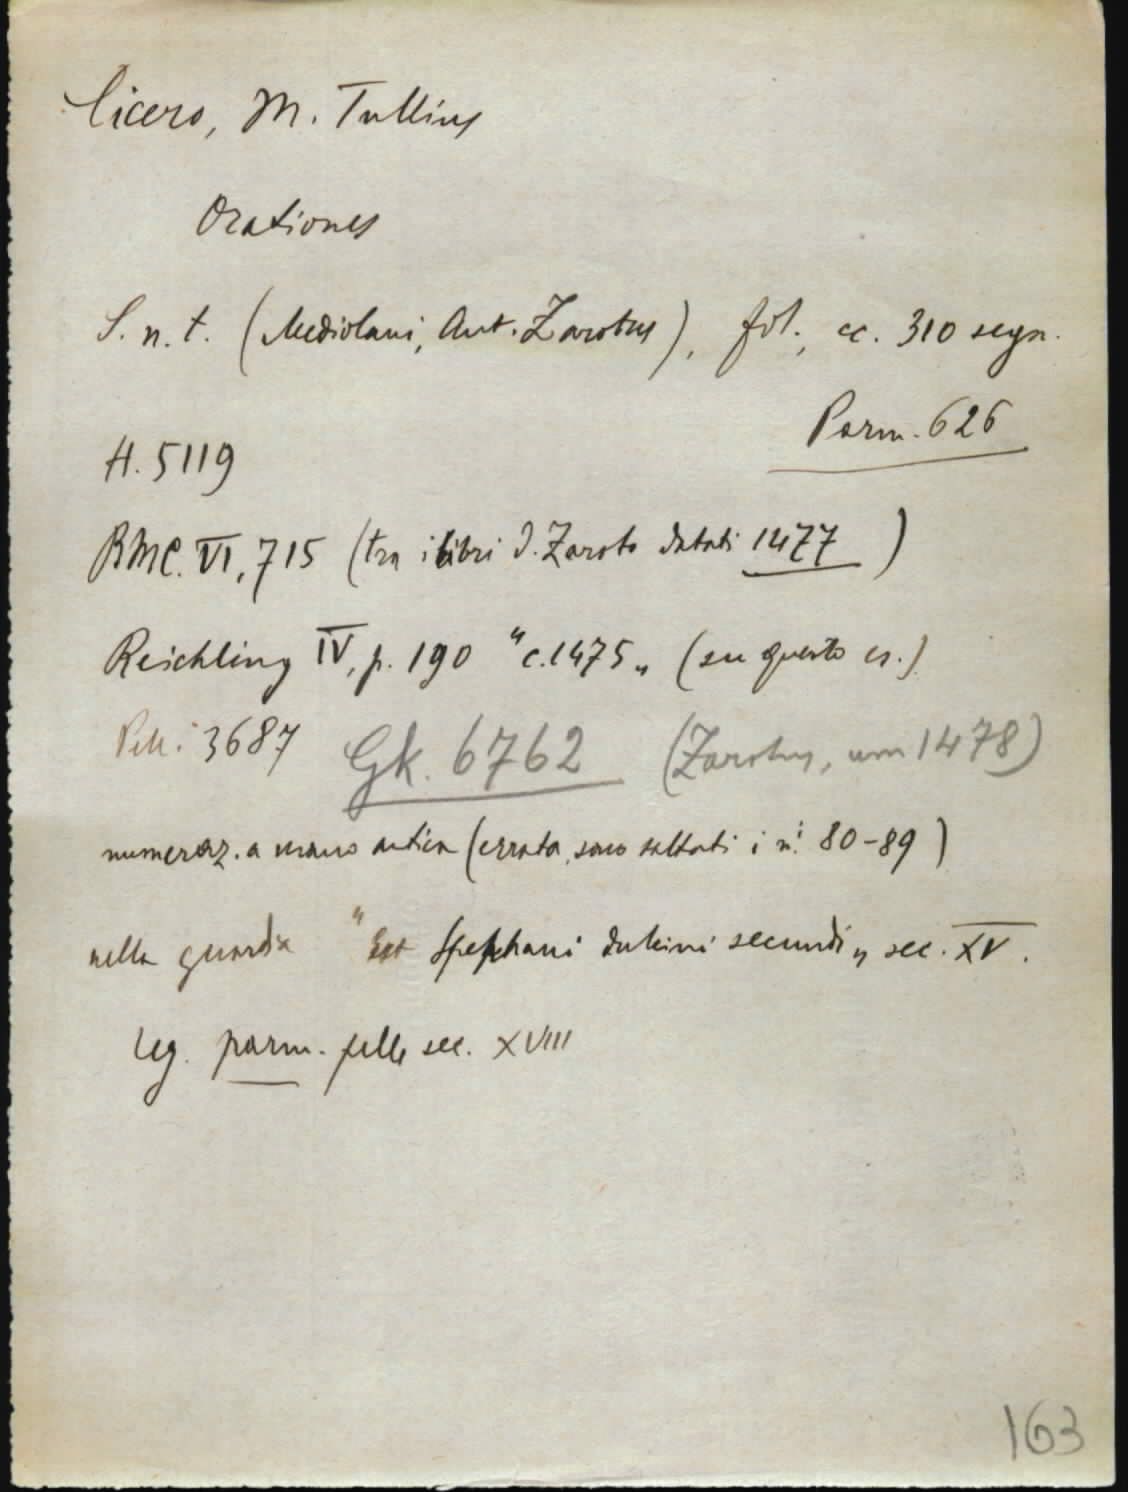 Cicero, M. Tullius
Orationes
S. n. t. (Mediolani, Ant. Zarotus), fol., cc. 310 segn.
Parm. 626
H. 5119
BMC. VI, 715 (tra i libri d. Zaroto datati 1477)
Reichling IV, p. 190 "c. 1475„ (su questo es.)
Pell. 3687 Gk. 6762 (Zarotus, um 1478)
numeraz. a mano antica (errata, sono saltati i n.i 80-89)
nella guardia "Est Stephani dulcini secundi„ sec. XV.
Leg. parm. pelle sec. XVIII
163